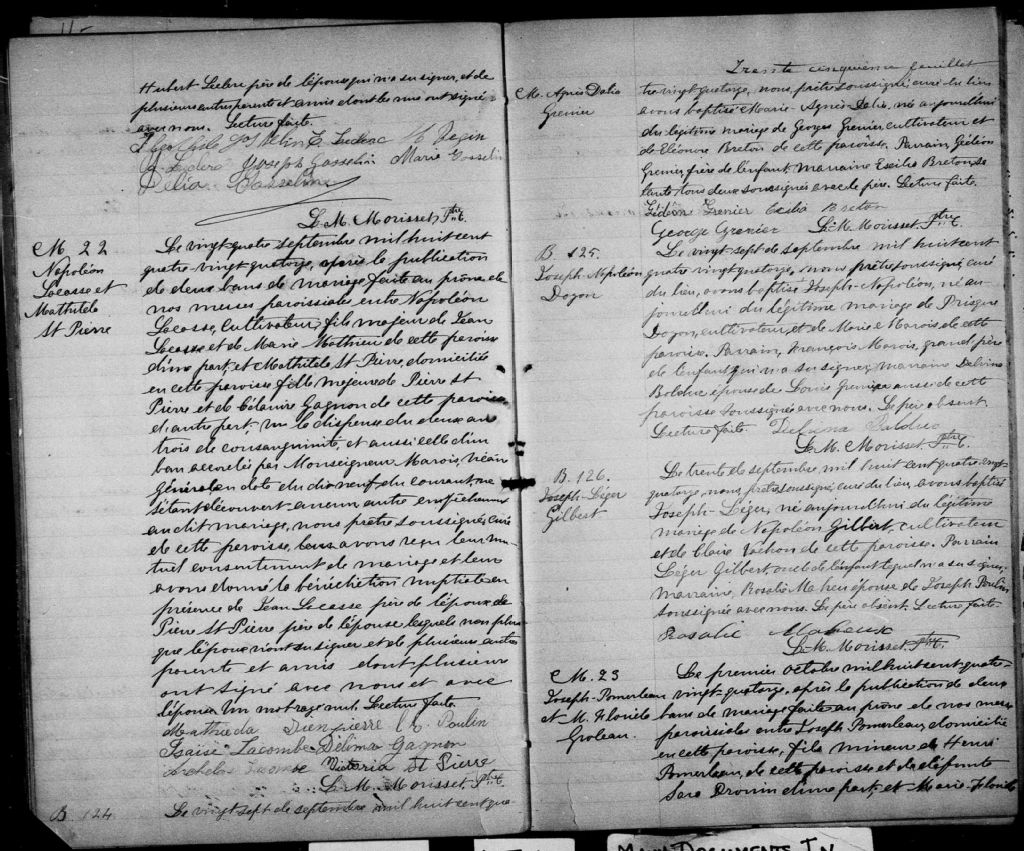 Hubert Leclerc père de l'épouse qui n'a su signer, et de
plusieurs autres parents et amis dont les uns ont signé
avec nous. Lecture faite.
Leclerc
Joseph Gosselin Marie Gosselin
Delia Gosselin
L. M. Morisset, Ptre C.
M. 22
Napoléon
Lacasse et
Mathilde
St Pierre
Le vingt quatre septembre mil huit cent
quatre-vingt quatorze, après la publication
de deux bans de mariage faite au prône de
nos messes paroissiales entre Napoléon
Lacasse, cultivateur, fils majeur de Jean
Lacasse et de Marie Mathieu de cette paroisse
d'une part; et Mathilde St Pierre, domiciliée
en cette paroisse fille majeure de Pierre St
Pierre et de Gagnon de cette paroisse
d'autre part. Vu la dispense du deux au
trois de consanguinité, et aussi celle d'un
ban accordés par Monseigneur Marois, Vicaire
Général en date du dix neuf du courant, ne
s'étant découvert aucun autre empêchement
au dit mariage, nous prêtre soussigné, curé
de cette paroisse, avons reçu leur mu-
tuel consentement de mariage et leur
avons donné la bénédiction nuptiale en
présence de Jean Lacasse père de l'époux de
Pierre St Pierre père de l'épouse lesquels non plus
que l'époux n'ont su signer et de plusieurs autres
parents et amis dont plusieurs
ont signé avec nous et avec
l'épouse. Un mot rayé nul. Lecture faite.
Mathilda Poulin
Lacombe Délima Gagnon
Archelas Lacombe Victoria St Pierre
L. M. Morisset, Ptre C.
B 124
Le vingt sept de septembre mil huit cent qua-
Trente cinquième feuillet
M. Agnès Dalia
Grenier
tre vingt quatorze, nous, prêtre soussigné, curé du lieu
avons baptisé Marie-Agnès-Dalia, née aujourd'hui
du légitime mariage de Georges Grenier, cultivateur et
de Eléonore Breton de cette paroisse. Parrain, Gédéon
Grenier, frère de l'enfant, Marraine Exilia Breton, sa
tante, tous deux soussignés avec le père. Lecture faite.
Gédéon Grenier Exilia Breton
George Grenier L. M. Morisset, Ptre C.
B. 125.
Joseph-Napoléon
Doyon
Le vingt-sept de septembre mil huit cent
quatre vingt quatorze, nous prêtre soussigné, curé
du lieu, avons baptisé Joseph-Napoléon, né au-
jourd'hui du légitime mariage de Prisque
Doyon, cultivateur, et de Marie Marois de cette
paroisse. Parrain, François Marois, grand-père
de l'enfant qui n'a su signer, marraine Delvina
Bolduc épouse de Louis Grenier aussi de cette
paroisse soussignée avec nous. Le père absent.
Lecture faite. Delvina Balduc
L. M. Morisset, Ptre C.
B. 126.
Joseph-Léger
Gilbert
Le trente de septembre, mil huit cent quatre-vingt-
quatorze, nous, prêtre soussigné, curé du lieu, avons baptisé
Joseph-Léger, né aujourd'hui du légitime
mariage de Napoléon Gilbert, cultivateur
et de Claire Vachon de cette paroisse. Parrain
Léger Gilbert, oncle de l'enfant lequel n'a su signer,
marraine, Rosalie Maheu épouse de Joseph Poulin
soussignée avec nous. Le père absent. Lecture faite.
Rosalie Maheux
L. M. Morisset, Ptre C.
M. 23
Joseph-Pomerleau
et M. Florida
Groleau.
Le premier octobre mil huit cent quatre-
vingt-quatorze, après la publication de deux
bans de mariage faite au prône de nos messes
paroissiales entre Joseph Pomerleau, domicilié
en cette paroisse, fils mineur de Henri
Pomerleau, de cette paroisse et de défunte
Sara Drouin d'une part; et Marie-Florida
MAIN DOCUMENTS IN